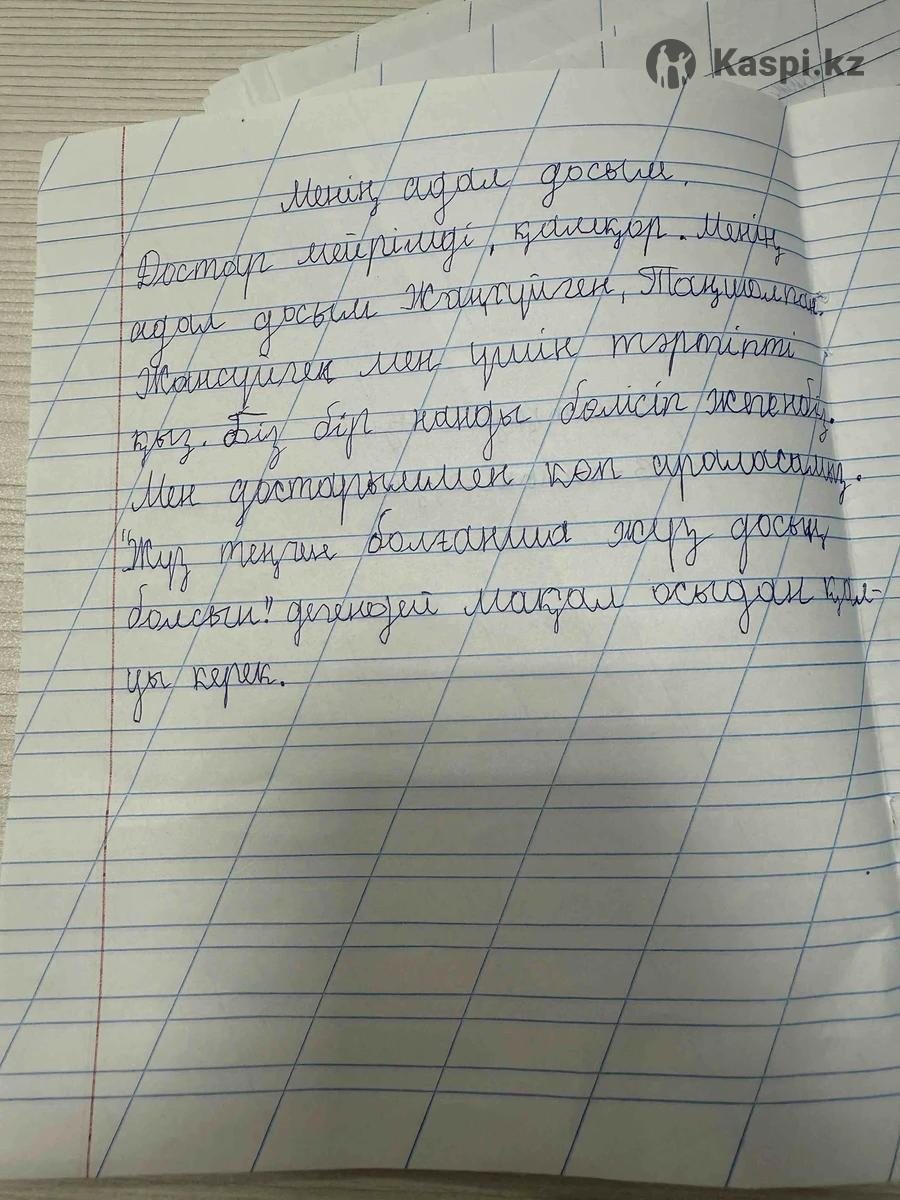 Kaspi.kz
Менің адал досым.
Достар мейрімді, қамқор. Менің
адал досым Жансүйген, Таңшолпан.
Жансүйген мен үшін тәртіпті
қыз. Біз бір нанды бөлісіп жегенбіз.
Мен достарыммен көп араласамыз.
"Жүз теңгең болғанша жүз досың
болсын!" дегендей мақал осыдан қал-
уы керек.